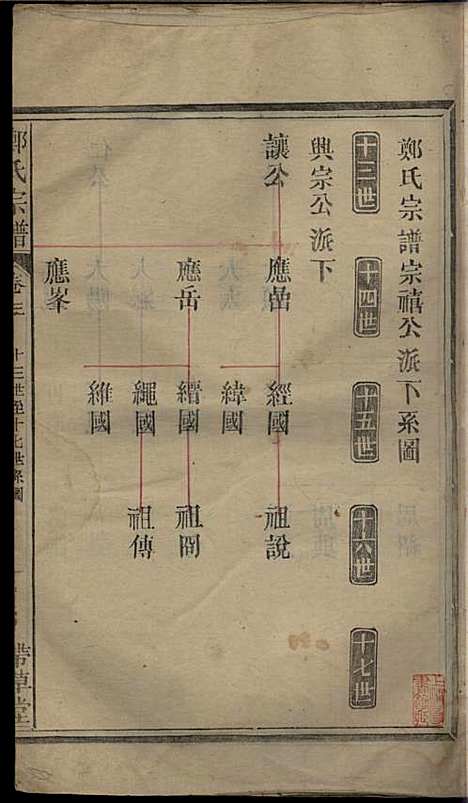 鄭氏宗譜宗禧公派下系圖
十三世
十四世
十五世
十六世
十七世
興宗公派下
讓公
應嵒
經國
祖說
緯國
應岳
縉國
祖冏
繩國
祖傳
維國
應峯
鄭氏宗譜
卷三
十三世至十七世系圖
帶草堂